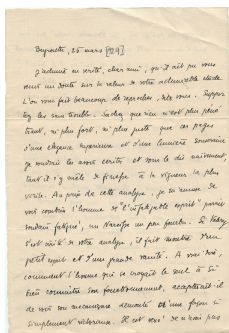 Beyrouth, 25 mars [1924]
J'admire en vérité, cher ami, qu'il ait pu vous
venir un doute sur la valeur de votre admirable étude.
L'on vous fait beaucoup de reproches, dites-vous. Suppor-
tez les sans trouble. Sachez que rien n'est plus péné-
trant, ni plus fort, ni plus juste que ces pages
d'une élégance supérieure et d'une lumière souveraine
je voudrais les avoir écrites et vous le dis naïvement,
tant il s'y mêle de finesse à la vigueur la plus
virile. Au prix de cette analyse, je m'amuse de
voir combien l'homme de l'"infatigable esprit" paraît
soudain fatigué, un Narcisse un peu fourbu. Si Valéry
s'est irrité de votre analyse, il fait montre d'un
petit esprit et d'une grande vanité. A vrai dire,
comment l'homme qui se croyait le seul à si
bien connaître son fonctionnement, accepterait-il
de voir son mécanisme démonté d'une façon si
simplement victorieuse. Il est vrai je n'ai pas